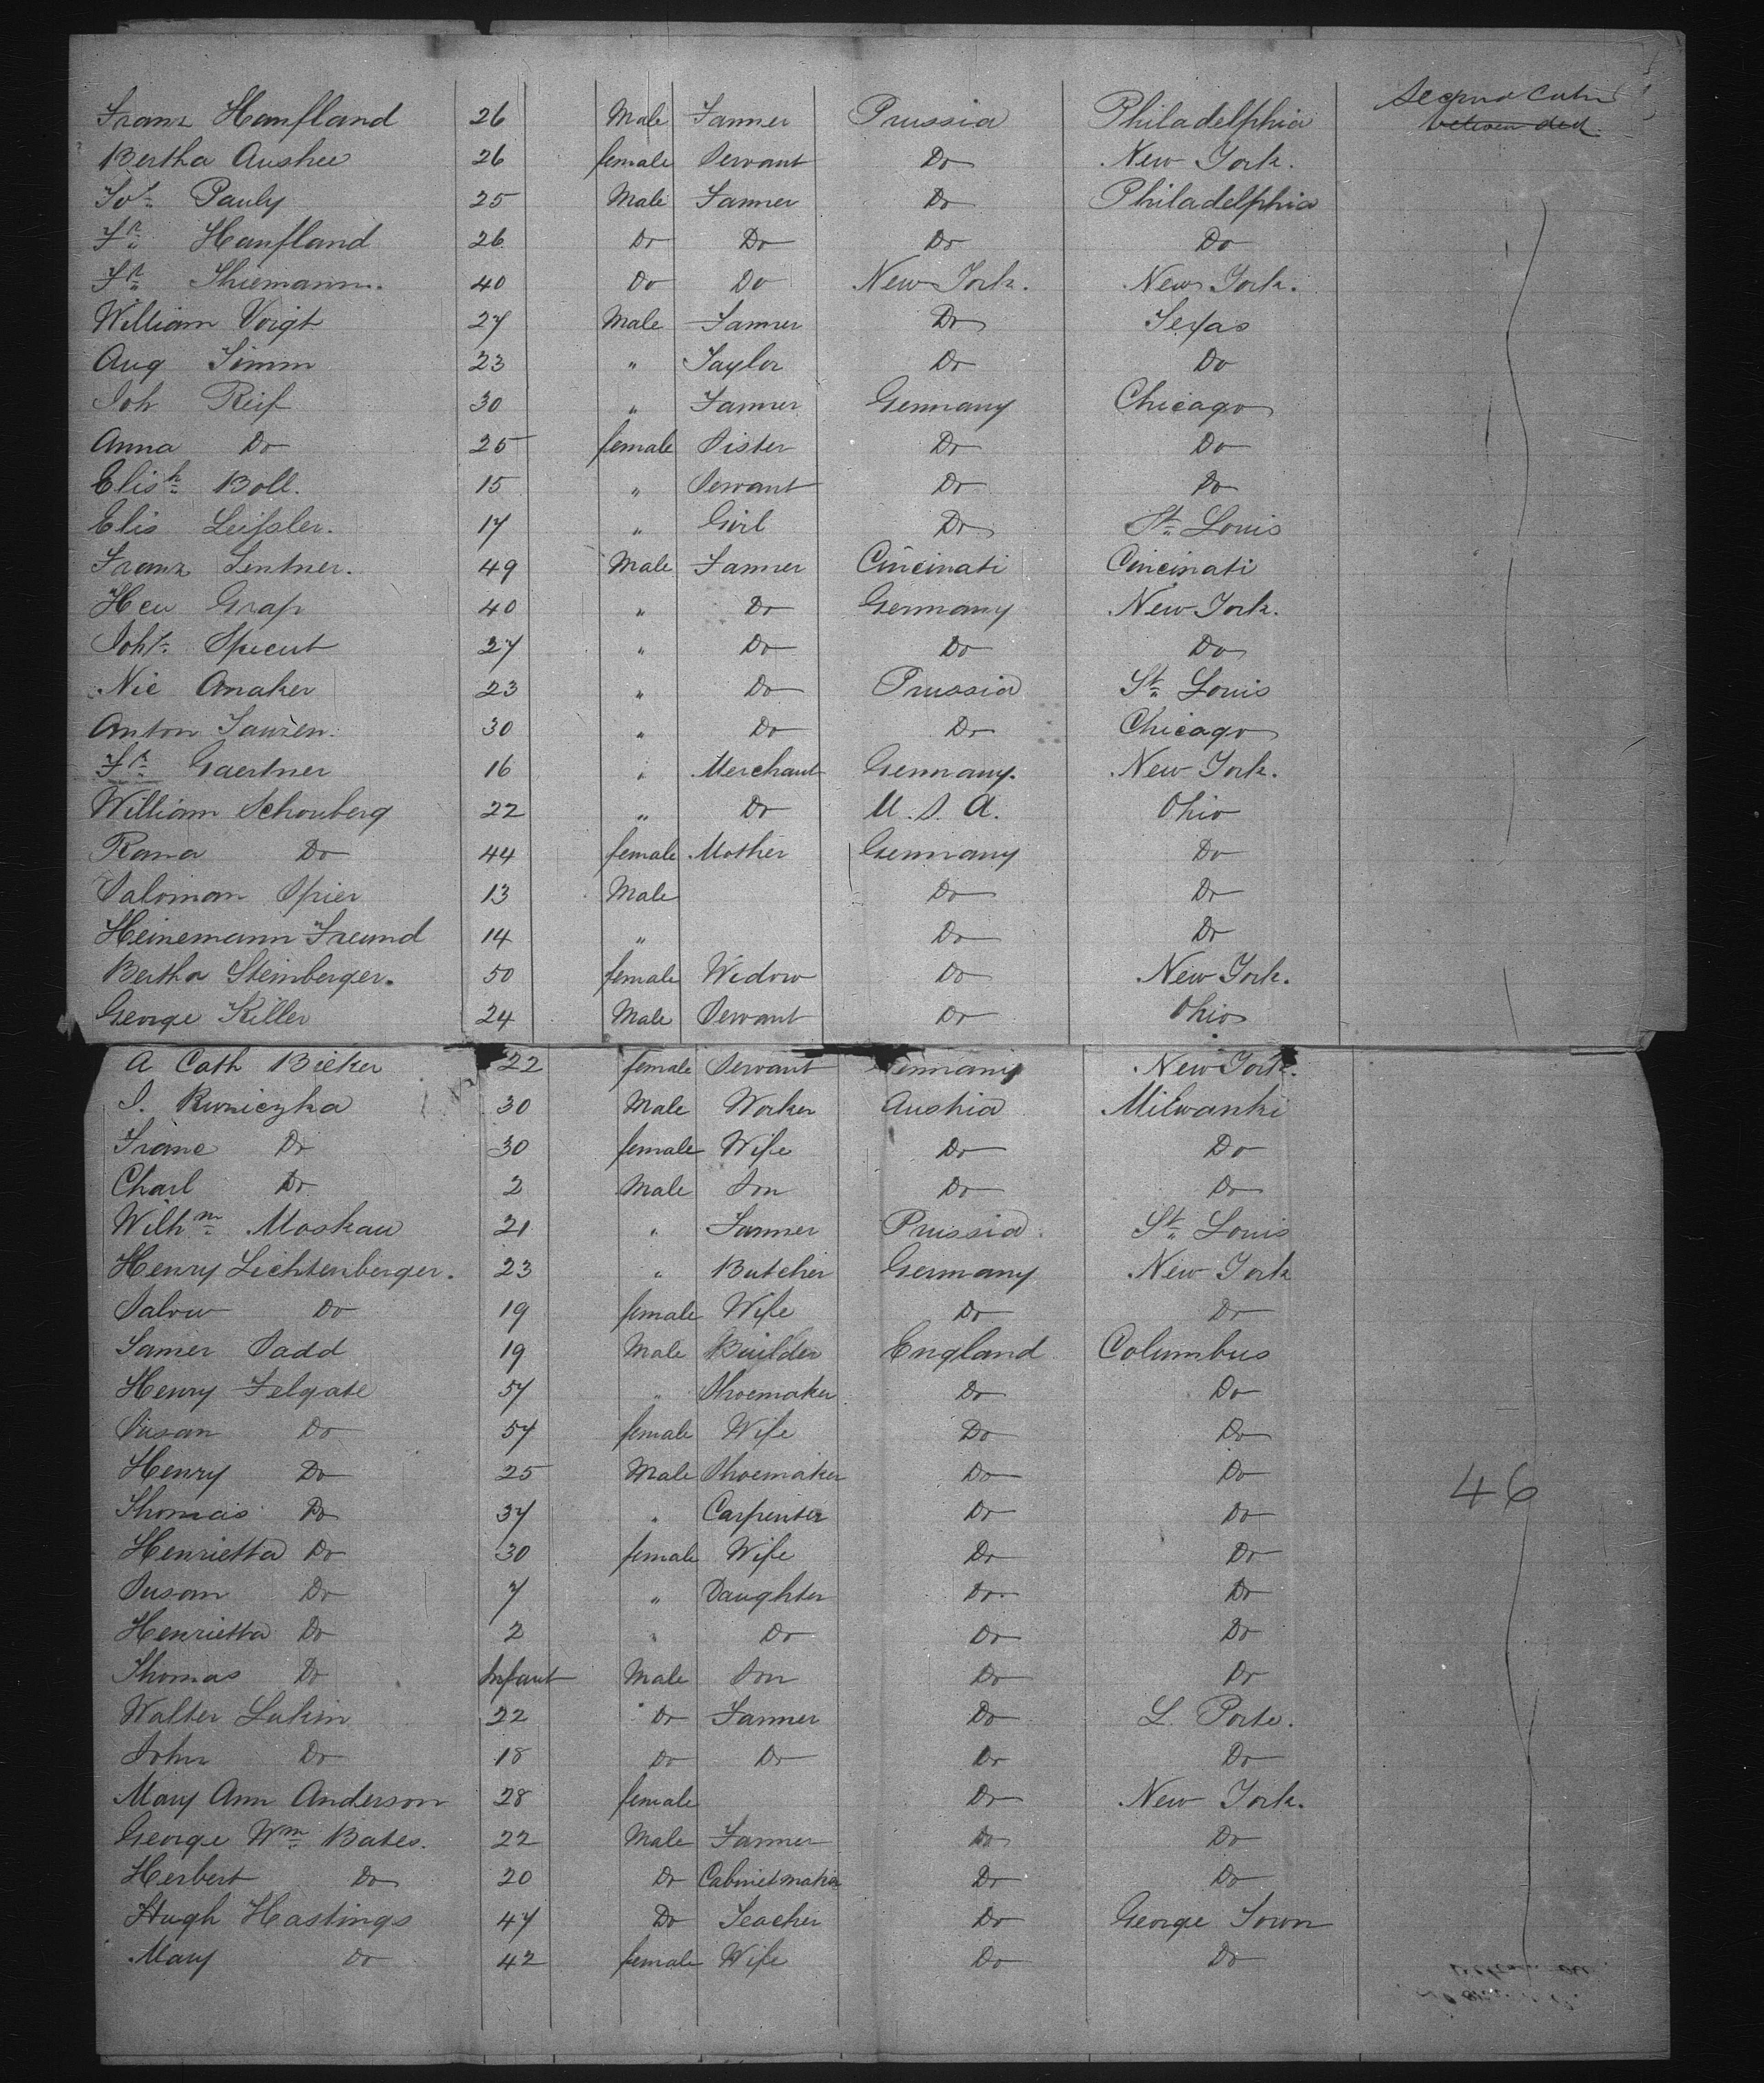 Second Cabin
between deck
Franz Hanfland 26 Male Farmer Prussia Philadelphia
Bertha Aushee 26 female Servant Do New York.
Jos. Pauly 25 Male Farmer Do Philadelphia
Fr. Hanfland 26 Do Do Do Do
Fr. Thiemann. 40 Do Do New York. New York.
William Voigt 27 Male Farmer Do Texas
Aug Timm 23 " Taylor Do Do
Joh Reif 30 " Farmer Germany Chicago
Anna Do 25 female Sister Do Do
Elisth Boll. 15 " Servant Do Do
Elis Leissler. 17 " Girl Do St. Louis
Franz Lentner. 49 Male Farmer Cincinati Cincinati
Hen Graf 40 " Do Germany New York.
Joht. Specut 27 " Do Do Do
Nic Anaker 23 " Do Prussia St. Louis
Anton 30 " Do Do Chicago
Fr. Gaertner 16 " Merchant Germany. New York.
William Schonberg 22 " Do U. S. A. Ohio
Rana Do 44 female Mother Germany Do
Saloman Spier 13 Male Do Do
Heinemann Freund 14 " Do Do
Bertha Steinberger. 50 female Widow Do New York.
George Killer 24 Male Servant Do Ohio
A Cath Bieker 22 female Servant Germany New York.
J. Ruzniczka 30 Male Worker Austria Milwauki
Franc Do 30 female Wife Do Do
Charl Do 2 Male Son Do Do
Wilhm Moskau 21 " Farmer Prussia St. Louis
Henry Lichtenberger. 23 " Butcher Germany New York
Do 19 female Wife Do Do
James Sadd 19 Male Builder England Columbus
Henry Felgate 57 " Shoemaker Do Do
Susan Do 57 female Wife Do Do
Henry Do 25 Male Shoemaker Do Do
46
Thomas Do 37 " Carpenter Do Do
Henrietta Do 30 female Wife Do Do
Susan Do 7 " Daughter Do Do
Henrietta Do 2 " Do Do Do
Thomas Do Infant Male Son Do Do
Walter Lukin 22 Do Farmer Do L. Porte.
John Do 18 Do Do Do Do
Mary Ann Anderson 28 female Do New York.
George Wm Bates. 22 Male Farmer Do Do
Herbert Do 20 Do Cabinetmaker Do Do
Hugh Hastings 47 Do Teacher Do George Town
Mary Do 42 female Wife Do Do